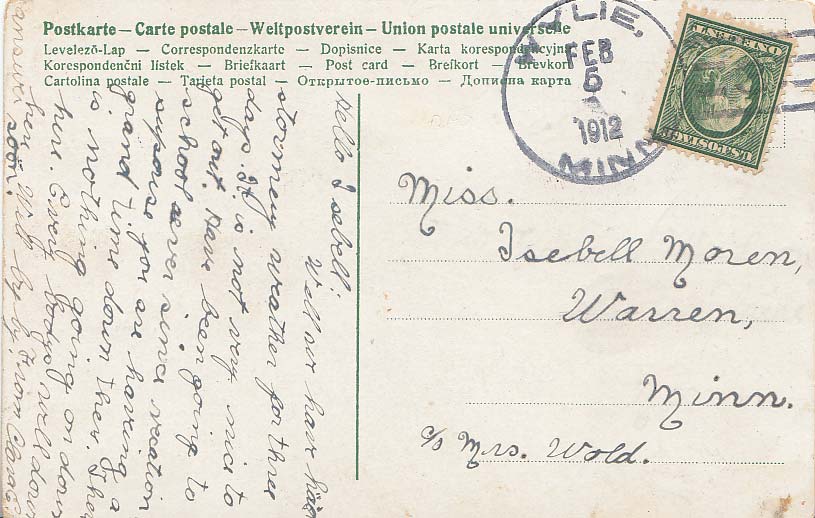 Postkarte — Carte postale — Weltpostverein — Union postale universelle
Levelező-Lap — Correspondenzkarte — Dopisnice — Karta korespondencyjna
Korespondenční lístek — Briefkaart — Post card — Brefkort — Brevkort
Cartolina postale — Tarjeta postal — Открытое письмо — Дописна карта
LIE,
FEB
5
1912
MINN
U.S. POSTAGE
Miss.
Isebell Moren,
Warren,
Minn.
c/o Mrs. Wold.
Hello Isebell:
Well we have had
stormeny weather for three
days. It is not very nice to
get out. Have been going to
school ever since vcation
supouse you are having a
grand time down ther. Ther
is nothing going on down
here. Every bodys well down
here. Will by by. From Clara
answer
soon.